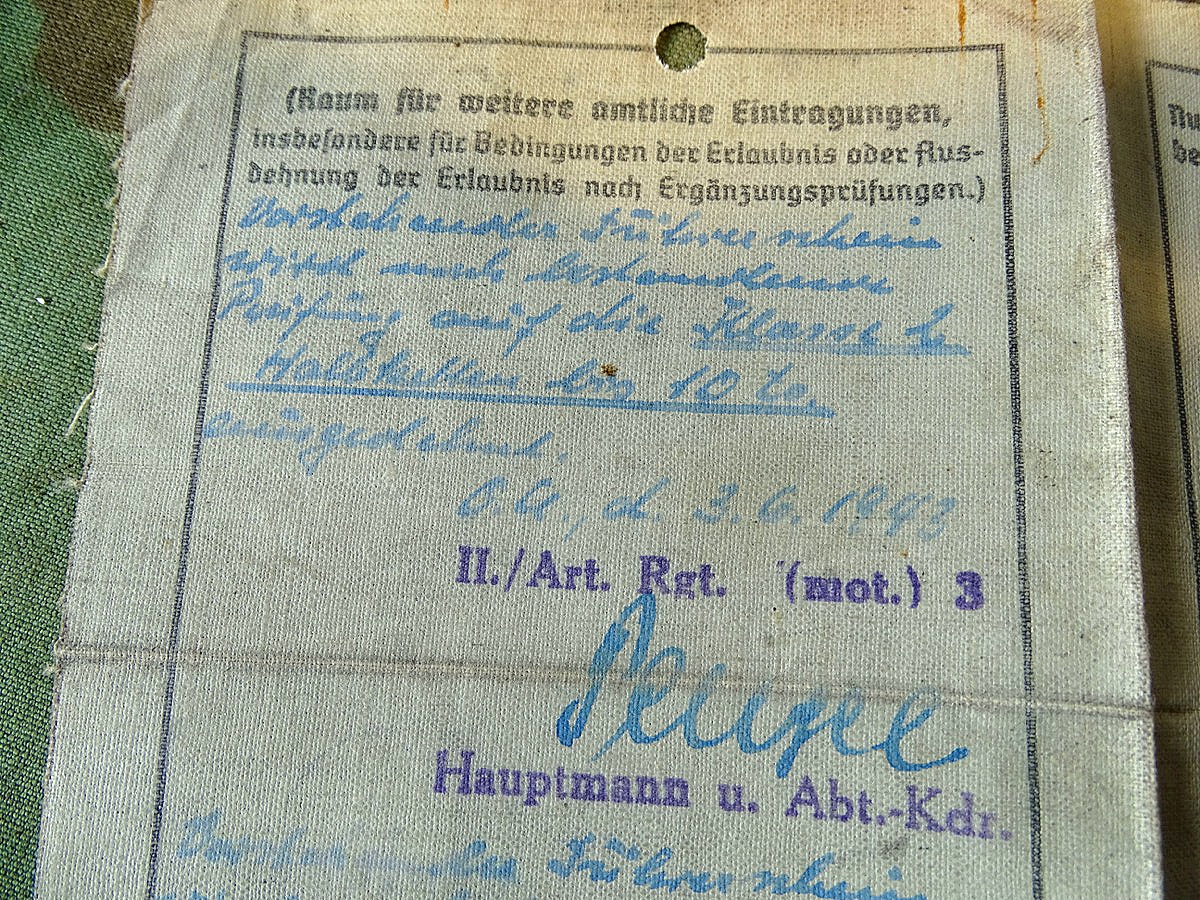 (Raum für weitere amtliche Eintragungen,
insbesondere für Bedingungen der Erlaubnis oder Aus-
dehnung der Erlaubnis nach Ergänzungsprüfungen.)
Vorstehender Führerschein
wird nach bestandener
Prüfung auf die Klasse
Halbketten bis 10 to.
ausgedehnt.
O.U., d. 3.6.1943
II./Art. Rgt. (mot.) 3
Hauptmann u. Abt.-Kdr.
Vorstehender Führerschein